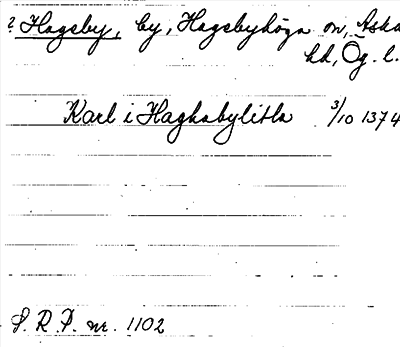 ? Hagsby, by, Hagebyhöga sn, Aska
hd, Ög. l.
Karl i Haghabylitla 3/10 1374
S. R. P. nr. 1102